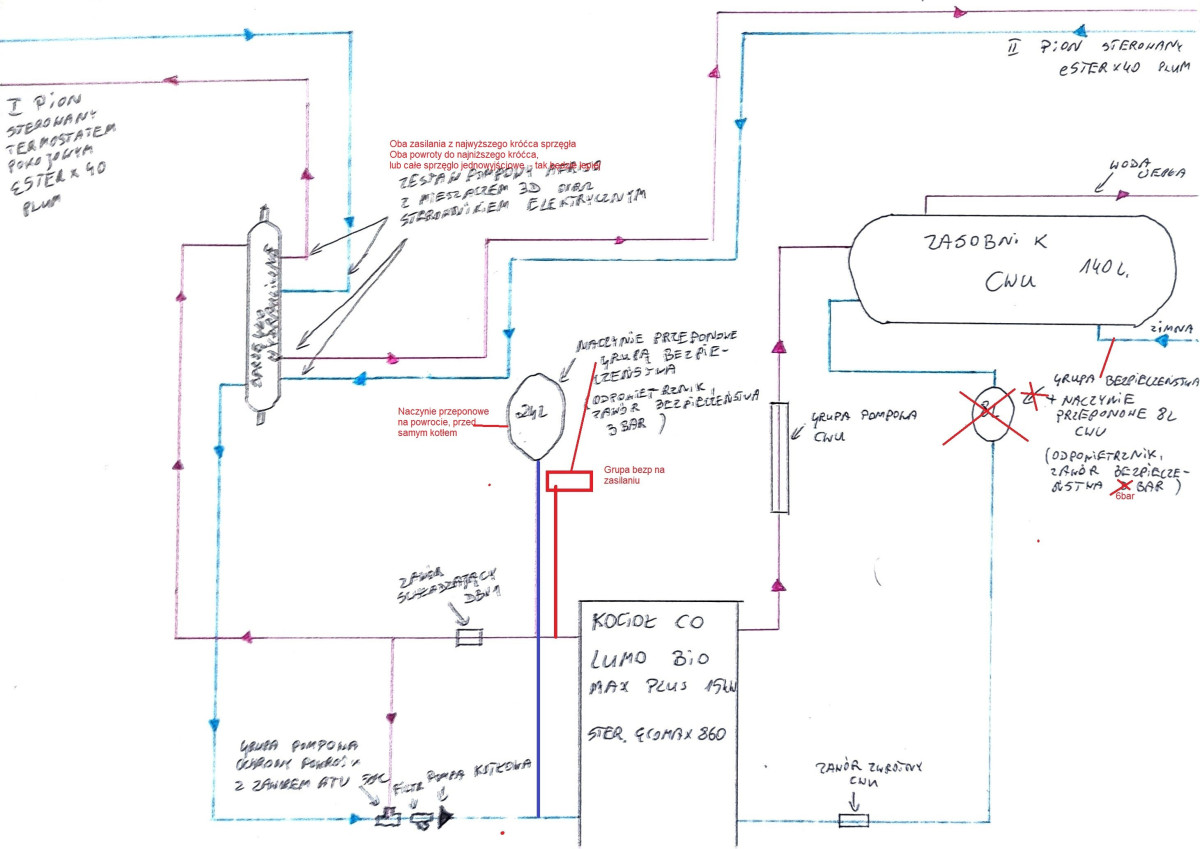 II PION STEROWANY
eSTER x40 PLUM
I PION
STEROWANY
TERMOSTATEM
POKOJOWYM
ESTER x 40
PLUM
Oba zasilania z najwyższego króćca sprzęgła
Oba powroty do najniższego króćca,
lub całe sprzęgło jednowyjściowe - tak będzie lepiej
ZESTAW POMPOWY
Z MIESZACZEM 3D ORAZ
STEROWNIKIEM ELEKTRYCZNYM
WODA
ZASOBNIK
CWU 140L.
ZIMNA
NACZYNIE PRZEPONOWE
GRUPĄ BEZPIE-
CZEŃSTWA
(ODPOWIETRZNIK,
ZAWÓR BEZPIECZEŃSTWA
3 BAR)
24L
Naczynie przeponowe
na powrocie, przed
samym kotłem
Grupa bezp na
zasilaniu
GRUPA POMPOWA
CWU
8L
GRUPA BEZPIECZEŃSTWA
+ NACZYNIE
PRZEPONOWE 8L
CWU
(ODPOWIETRZNIK,
ZAWÓR BEZPIECZE-
ŃSTWA BAR)
6bar
ZAWÓR
SCHŁADZAJĄCY
DBV1
KOCIOŁ CO
LUMO BIO
MAX PLUS 15kW
STER. ECOMAX 860
GRUPA POMPOWA
OCHRONY POWROTU
Z ZAWOREM ATV
FILTR
POMPA KOTŁOWA
ZAWÓR ZWROTNY
CWU